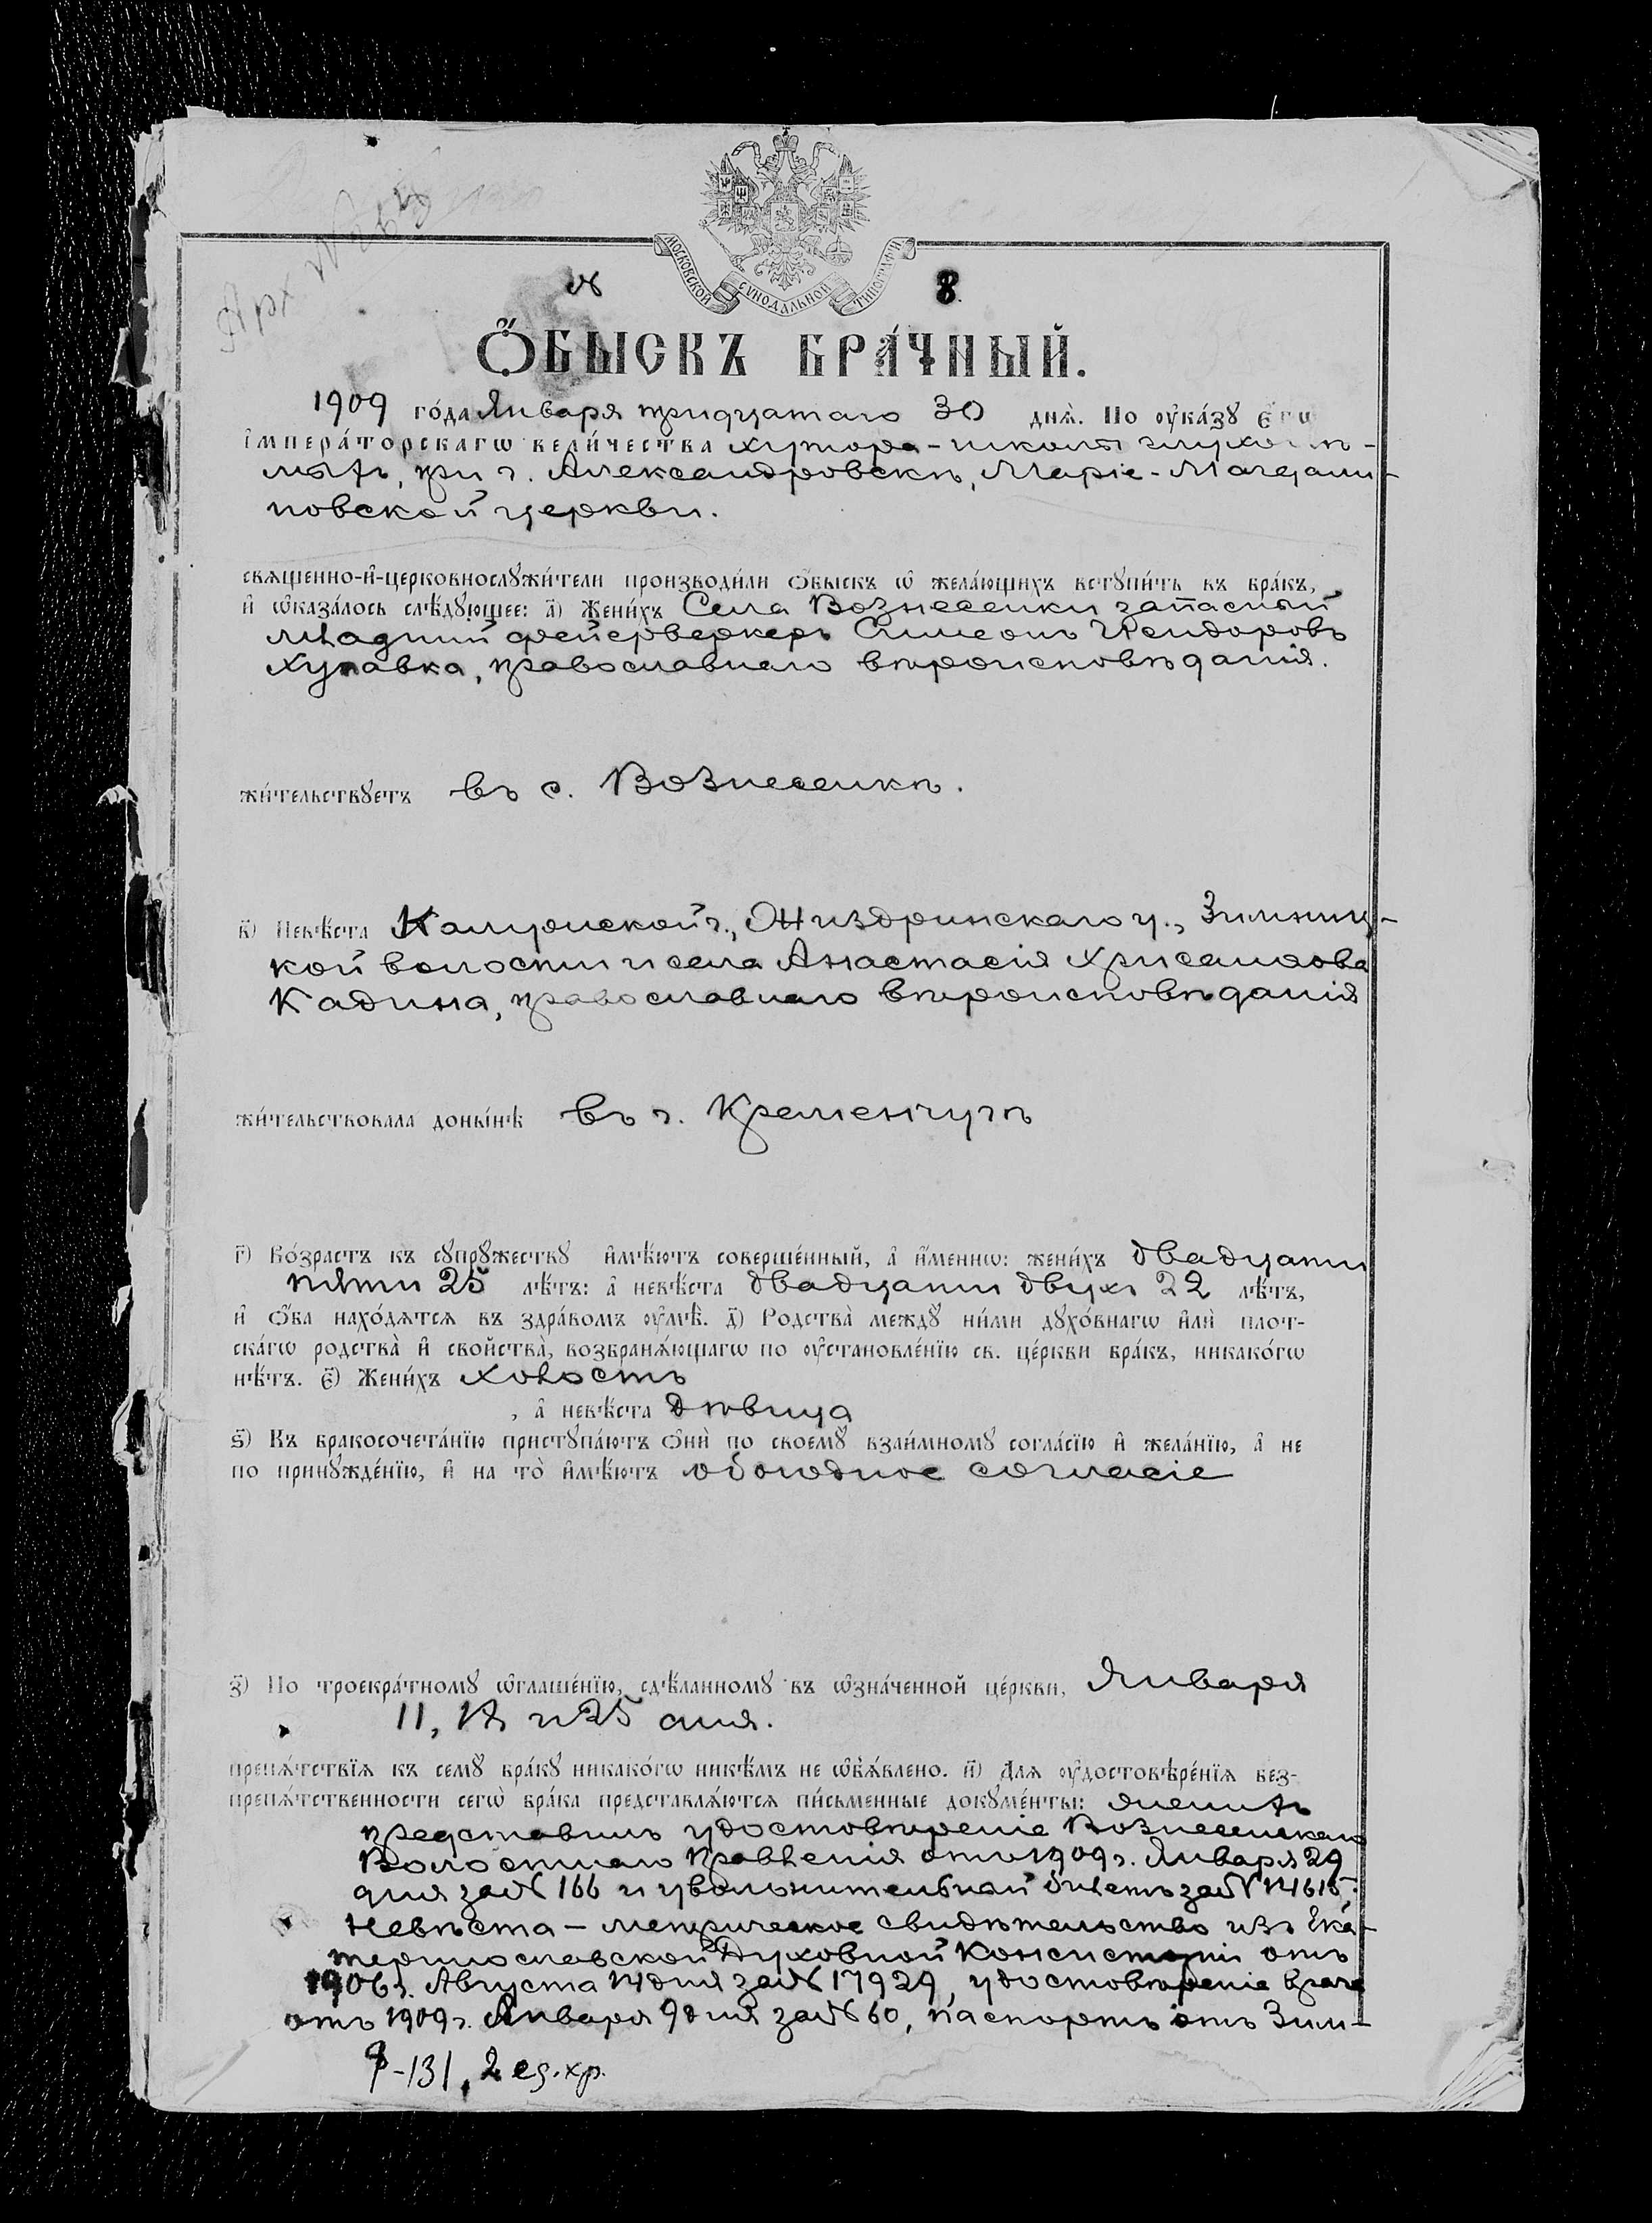 Арх №
МОСКОВСКОЙ СѴНОДАЛЬНОЙ ТИПОГРАФІИ
№ 8.
Ѻ҆БЫСКЪ БРА́ЧНЫЙ.
1909 го́да Января тридцатаго 30 днѧ̀. По ᲂу҆ка́зꙋ є҆гѡ̀
і҆мпера́торскагѡ вели́чества хутора-школы глухонѣ-
мыхъ, при г. Александровскѣ, Маріе-Магдали-
новской церкви.
сващенно-и҆-церковнослꙋжи́тели производи́ли ѻ҆́быскъ ѡ҆ жела́ющихъ встꙋпи́ть въ бра́къ,
и҆ ѡ҆каза́лось слѣ́дꙋющее: а҃) Жени́хъ Села Вознесенки запасный
младшій фейерверкеръ Симеонъ Исидоровъ
Хупавка, православнаго вѣроисповѣданія.
жи́тельствꙋетъ въ с. Вознесенкѣ.
в҃) Невѣ́ста Калужской г., Жиздринскаго у., Зимниц-
кой волости и села Анастасія Хрисанѳова
Кадина, православнаго вѣроисповѣданія
жи́тельствовала доны́нѣ въ г. Кременчугѣ
г҃) Во́зрастъ къ сꙋпрꙋжествꙋ и҆мѣ́ютъ соверше́нный, а҆ и҆́меннѡ: жени́хъ двадцати
пяти 25 лѣ́тъ: а҆ невѣ́ста двадцати двухъ 22 лѣ́тъ,
и҆ ѻ҆́ба нахо́дѧтсѧ въ здра́вомъ ᲂу҆мѣ̀. д҃) Родства̀ междꙋ ни́ми дꙋхо́внагѡ и҆лѝ плот-
ска́гѡ родства̀ и҆ свойства̀, возбранѧ́ющагѡ по ᲂу҆становле́нїю св. це́ркви бра́къ, никако́гѡ
нѣ́тъ. є҃) Жени́хъ холостъ
, а҆ невѣ́ста дѣвица
ѕ҃) Къ бракосочета́нїю пристꙋпа́ютъ ѻ҆нѝ по своемꙋ̀ взаи́мномꙋ согла́сїю и҆ жела́нїю, а҆ не
по принꙋжде́нїю, и҆ на то̀ и҆мѣ́ютъ обоюдное согласіе
з҃) По троекра́тномꙋ ѡ҆глаше́нїю, сдѣ́ланномꙋ въ ѡ҆зна́ченной це́ркви, Января
11, 18 и 25 дня.
препѧ́тствїѧ къ семꙋ̀ бра́кꙋ никако́гѡ никѣ́мъ не ѡ҆б̾ѧ́влено. и҃) Для ᲂу҆достовѣре́нїѧ без-
препѧ́тственности сегѡ̀ бра́ка представлѧ́ютсѧ пи́сьменные докꙋме́нты: женихъ
представилъ удостовѣреніе Вознесенскаго
Волостнаго Правленія отъ 1909 г. Января 29
дня за № 166 и увольнительный билетъ за № 14615.
Невѣста – метрическое свидѣтельство изъ Ека-
теринославской Духовной Консисторіи отъ
1906 г. Августа 14 дня за № 17929, удостовѣреніе врача
отъ 1909 г. Января 9 дня за № 60, паспортъ отъ Зим-
Ф-131, 2 ед.хр.